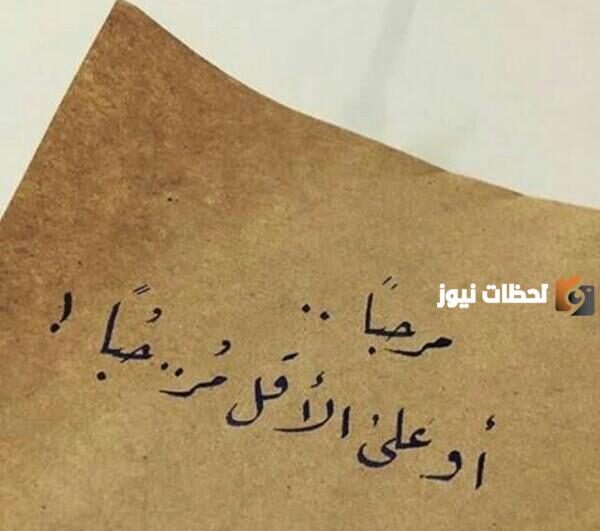 مرحبًا ..
أو على الأقل مُر..حُبًا !
لحظات نيوز